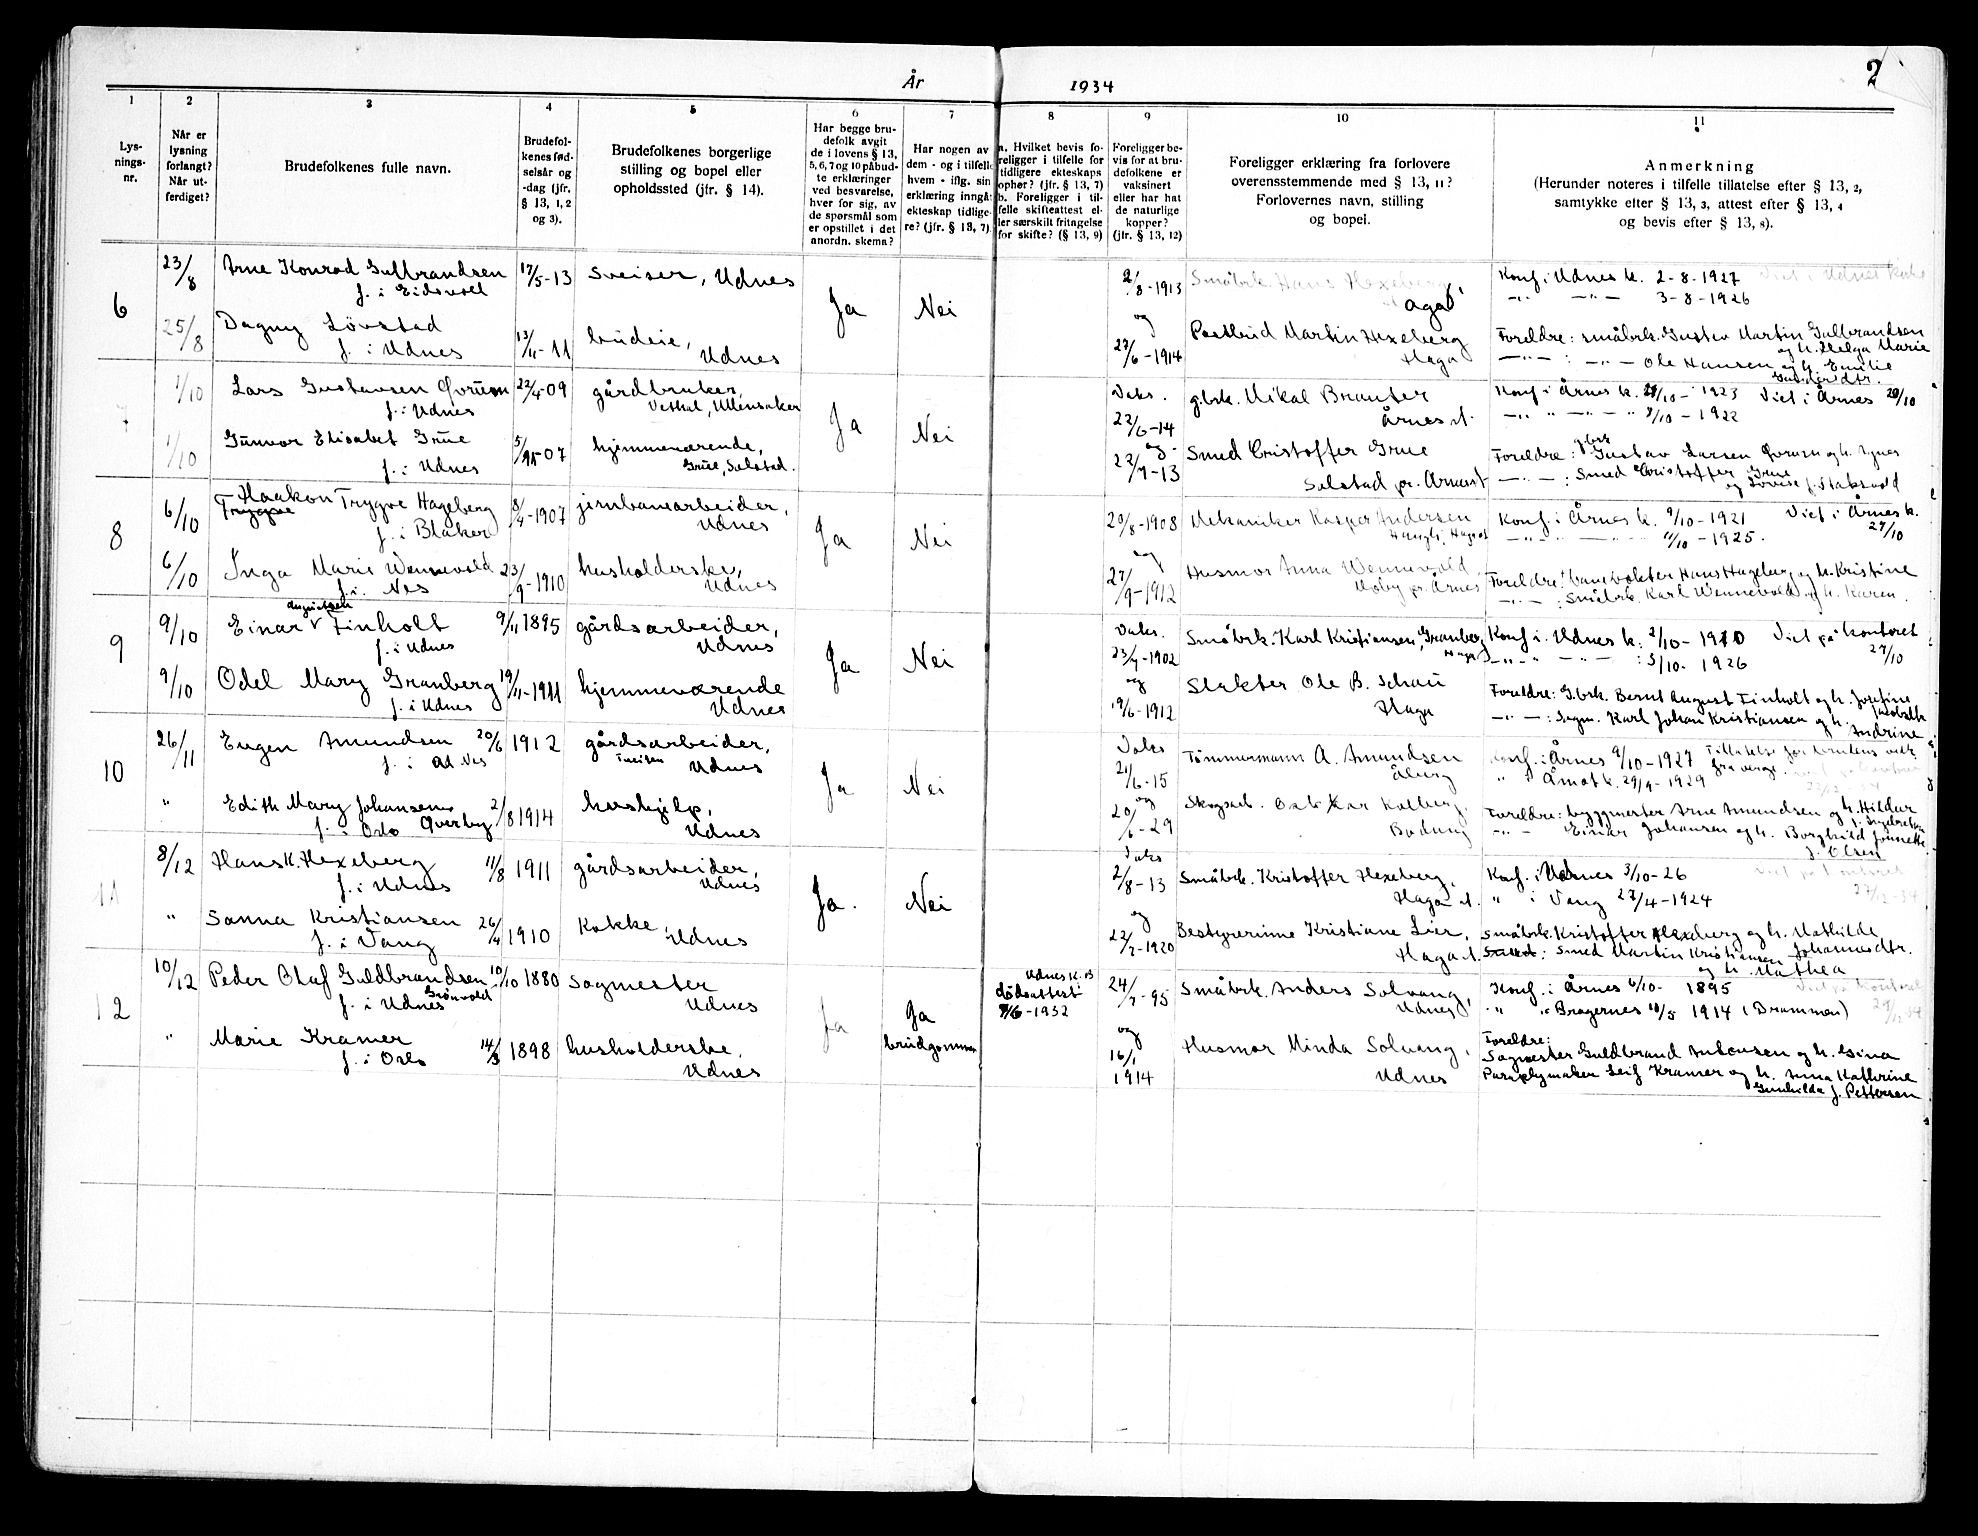 År 1934
2
1 2 3 4 5 6 7 8 9 10 11
Lys-
nings-
nr.
Når er
lysning
forlangt?
Når ut-
ferdiget?
Brudefolkenes fulle navn.
Brudefol-
kenes fød-
selsår og
-dag (jfr.
§ 13, 1, 2
og 3).
Brudefolkenes borgerlige
stilling og bopel eller
opholdssted (jfr. § 14).
Har begge bru-
defolk avgit
de i lovens § 13,
5, 6, 7 og 10 påbud-
te erklæringer
ved besvarelse,
hver for sig, av
de spørsmål som
er opstillet i det
anordn. skema?
Har nogen av
dem - og i tilfelle
hvem - iflg. sin
erklæring inngå
ekteskap tidlige-
re? (jfr. § 13, 7).
a. Hvilket bevis fo-
religger i tilfelle for
tidligere ekteskaps
ophør? (jfr. § 13, 7)
b. Foreligger i til-
felle skifteattest el-
ler særskilt fritagelse
for skifte? (§ 13, 9)
Foreligger be-
vis for at bru-
defolkene er
vaksinert
eller har hat
de naturlige
kopper?
(jfr. § 13, 12)
Foreligger erklæring fra forlovere
overensstemmende med § 13, 11?
Forlovernes navn, stilling
og bopel.
Anmerkning
(Herunder noteres i tilfelle tillatelse efter § 13, 2,
samtykke efter § 13, 3, attest efter § 13, 4
og bevis efter § 13, 8).
6
23/8 Arne Konrad Gulbrandsen 17/5-13 Sveiser, Udnes
f. i Eidsvoll
Ja Nei
2/8-1913 Småbrk. Hans Hexeberg,
Haga
Konf. i Udnes k. 2-8-1927 Viet i Udnes kirke
-"- -"- 3-8-1926
25/8 Dagny Lövstad 13/11-11 budeie,
f. i Udnes Udnes
og
27/6-1914 Postbud Martin Hexeberg
Haga
Foreldre: småbrk. Gustav Martin Gulbrandsen
og h. Helga Marie
-"- : -"- Ole Hansen og h. Emilie
Gundersdtr.
7
1/10 Lars Gustavsen Qvrum 22/4-09 gårdbruker,
f. i Udnes Vethal, Ullensaker
Ja Nei
Vaks.
22/6-14 g.brk. Mikal Branter
Årnes st.
Konf i Årnes k. /10-1923 Viet i Årnes 20/10
-"- " -"- " 8/10-1922
1/10 Gunvor Elisabet Grue 5/-07 hjemmeværende,
f. i Udnes Grue, Solstad.
og
22/9-13 Smed Cristoffer Grue
Solstad pr. Årnes st
Foreldre: g.brk Gustav Larsen Qvrum og h. Agnes
-"- : Smed Cristoffer Grue
og Lovise f. Staksvold
8
6/10 Haakon Trygve Hageberg 8/4-1907 jernbanearbeider,
Trygve
f. i Blaker Udnes
Ja Nei
20/8-1908 Mekaniker Kasper Andersen
Haugli, Haga st
Konf. i Årnes k. 9/10-1921 Viet i Årnes k.
-"- 11/10-1925. 27/10
6/10 Inga Marie Wennevold 23/9-1910 husholderske,
f. i. Nes Udnes
og
27/9-1912 Husmor Anna Wennevold,
pr. Årnes
Foreldre: banevokter Hans Hageberg og h. Kristine
-"- : Småbrk. Karl Wennevold og h. Karen.
9
9/10 Einar Augustsen Finholt 9/11 1895 gårdsarbeider,
f. i Udnes Udnes
Ja Nei
Vaks.
23/9-1902 Småbrk. Karl Kristiansen, Granberg
Haga
Konf. i. Udnes k. 2/10-1910 Viet på kontoret
-"- -"- : 3/10-1926 27/10
9/10 Odel Mary Granberg 19/11-1911 hjemmeværende
f. i Udnes Udnes
og
19/6-1912 Slakter Ole B. Schau
Haga
Foreldre: G.brk. Bernt August Finholt og h. Josefine
Jacobsdtr
-"- : Sagm. Karl Johan Kristiansen og h. Andrine
10
26/11 Eugen Amundsen 20/6 1912 gårdsarbeider,
f. i Ad Nes Tveiten Udnes
Ja Nei
Vaks
21/6-15 Tömmermann A. Amundsen
Åberg
Konf. i Årnes 9/10-1927 Tillatelse for brudens vedk.
" i Åmot k. 29/9-1929 fra verge.
" Edith Mary Johansen 2/8 1914 hushjelp,
f. i Oslo Qverby Udnes
og
20/6-29 Skogsarb. Oskar Kolberg,
Bodung
Foreldre: byggmester Arne Amundsen og h. Hildur
"- Einar Johansen og h. Borghild Jeanette
f. Olsen
11
8/12 Hans K. Hexeberg 11/8 1911 gårdsarbeider,
f. i Udnes Udnes
Ja. Nei
Vaks
2/8-13 Småbrk. Kristoffer Hexeberg,
Haga st.
Konf. i Udnes 3/10-26 Viet på kontoret
" i Vang 27/4-1924 27/12-34
" Sanna Kristiansen 26/4 1910 Kokke,
f. i Vang Udnes
og
22/2-1920 Bestyrerinne Kristiane Lier,
Haga st.
Småbrk. Kristoffer Hexeberg og h. Mathilde
Johannesdtr.
Smed Martin Kristiansen
og h. Mathea
12
10/12 Peder Olaf Guldbrandsen 10/10 1880 Sagmester
Grönvold
f. i Udnes Udnes
Ja Ja
brudgommen
Udnes k. B
dödsattest
7/6-1932
24/7-95 Småbrk. Anders Solvang,
Udnes
Konf. i Årnes 6/10- 1895 Viet på kontoret
" " Bragernes 10/5 1914 (Drammen) 29/12-34
" Marie Kramer 14/3 1898 husholderske.
f. i Oslo Udnes
og
16/1
1914 Husmor Minda Solvang,
Udnes
Foreldre:
Sagmester Guldbrand Antonsen og h. Gina
Paraplymaker Leif Kramer og h. Anna Kathrine
Gunhilda f. Pettersen